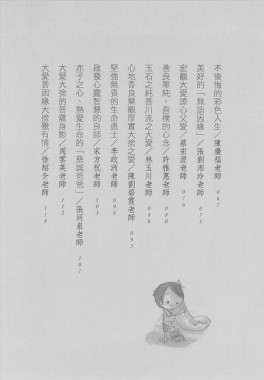 不後悔的彩色人生／陳慶福老師 067
美好的「無語因緣」／張劉湘玲老師 073
宏觀大愛源心父愛／蔡宏源老師 079
善良單純、真樸的心念／許雅惠老師
玉石之純善川流之大愛／林玉川老師 088
心地善良樂觀厚實大捨之愛／陳洲碧霞老師 093
堅強無畏的生命勇士／李政洲老師 098
啟發心靈智慧的良師／宋方祝老師 103
赤子之心、熱愛生命的「慈誠爸爸」／張河泉老師 108
大愛大捨的菩薩身影／周雲英老師 112
大愛善因緣大捨覺有情／徐紹介老師 118